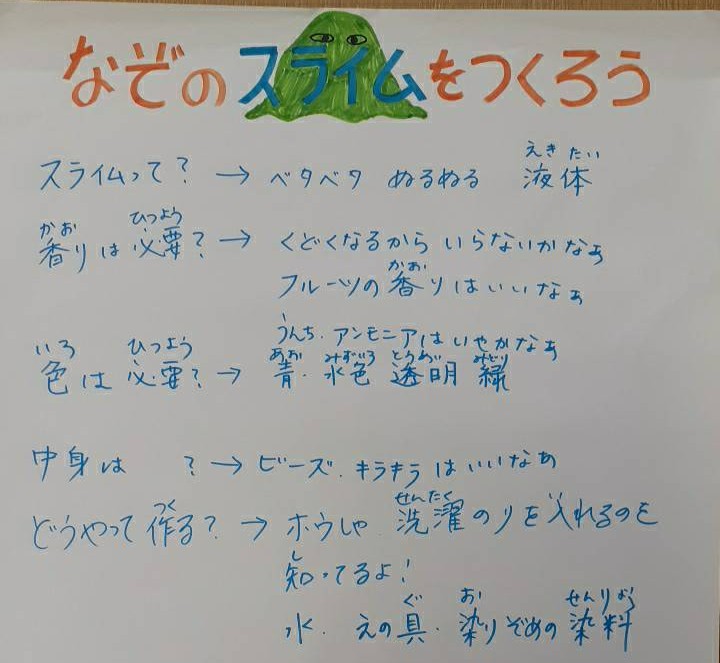 なぞのスライムをつくろう
スライムって? → ベタベタ ぬるぬる 液体
えきたい
香りは必要? → くどくなるから いらないかなぁ
かお ひつよう
フルーツの香りはいいなぁ
かお
うんち.アンモニアはいやかなぁ
色は必要? → 青.水色 透明 緑
いろ ひつよう あお みずいろ とうめい みどり
中身は ? → ビーズ.キラキラはいいなぁ
どうやって作る? → ホウしゃ.洗濯のりを入れるのを
つく せんたく
知ってるよ!
し
水.えの具.染りぞめの染料
ぐ お せんりょう